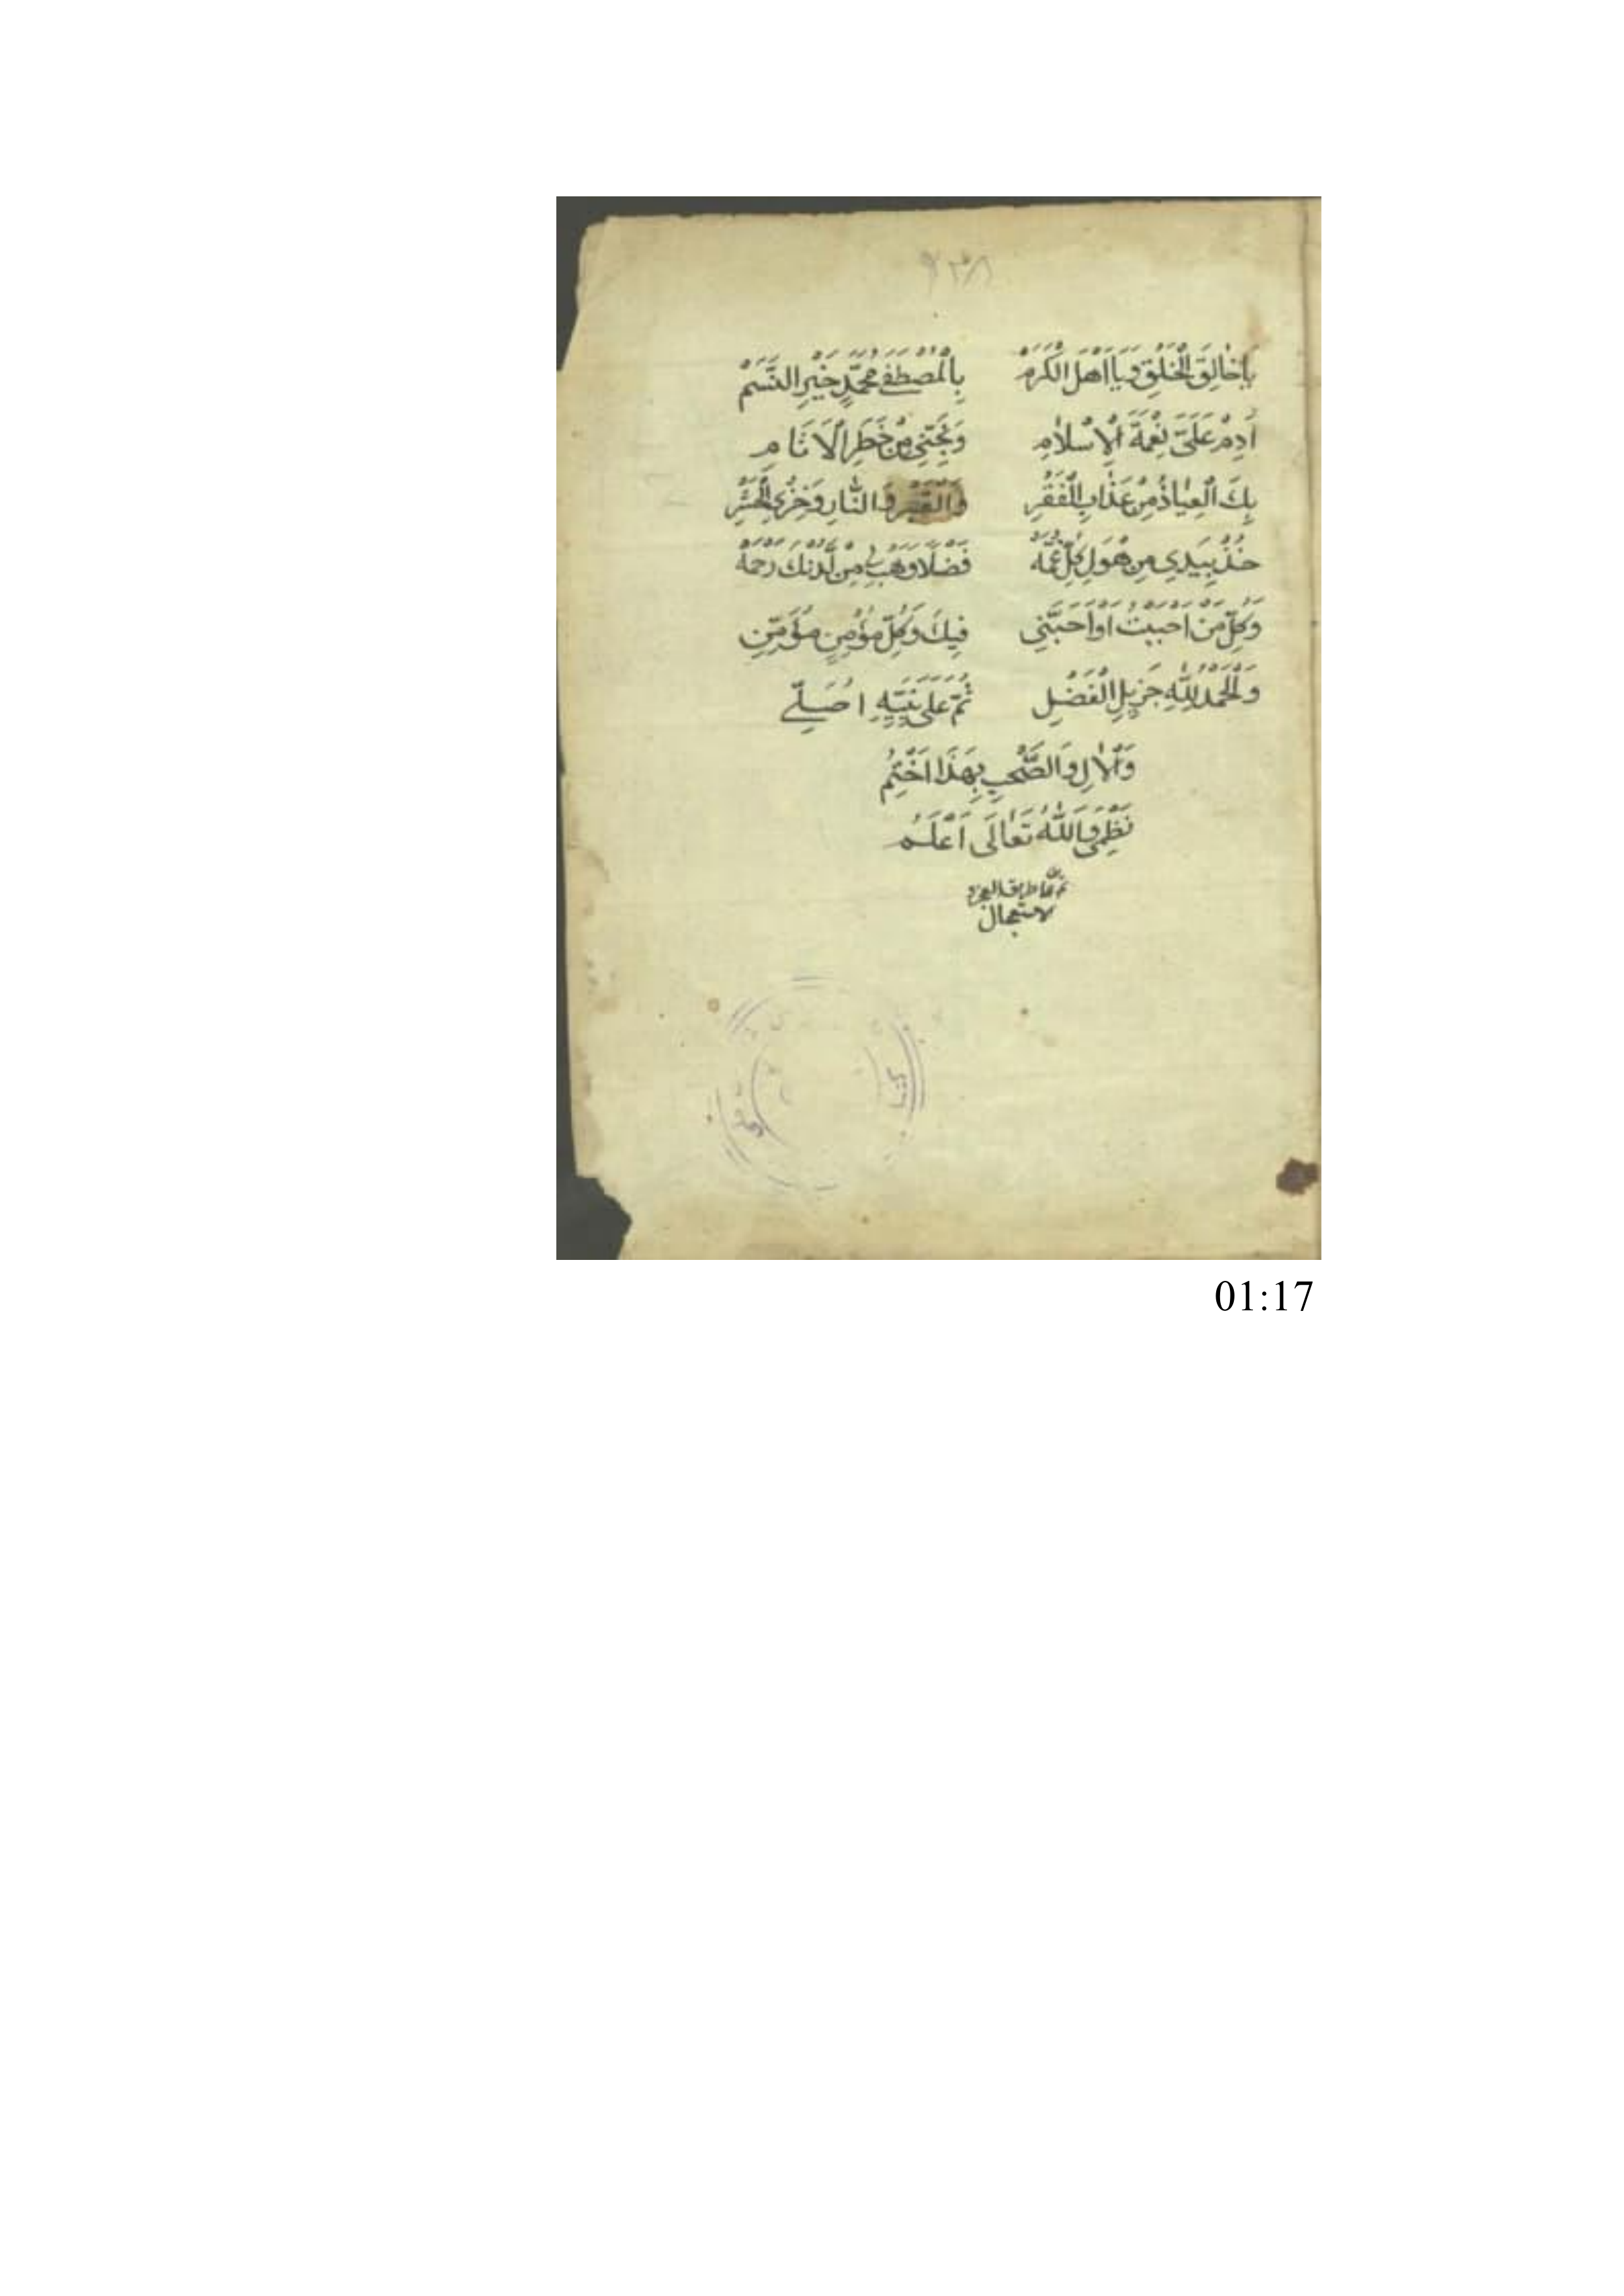 ٩٣٨
يَاخَالِقَ الْخَلْقِ وَيَا اَهْلَ الْكَرَمْ بِالْمُصْطَفٰے مُحَمَّدٍ خَيْرِ النَّسَمْ
اَدِمْ عَلَىَّ نِعْمَةَ الْاِسْلَامِ وَنَجِّنِي مِنْ خَطَرِ الْاَثَامِ
بِكَ الْعِيَاذُ مِنْ عَذَابِ الْفَقْرِ وَالْقَبْرِ وَالنَّارِ وَخِزْىِ الْحَشْرِ
خُذْ بِيَدِي مِنْ هَوْلِ كُلِّ غُمَّهْ فَضْلًا وَهَبْ لِي مِنْ لَّدُنْكَ رَحْمَهْ
وَكُلِّ مَنْ اَحْبَبْتُ اَوْ اَحَبَّنِي فِيكَ وَكُلِّ مُؤْمِنٍ مُؤَمِّنِ
وَالْحَمْدُ لِلّٰهِ جَزِيلِ الْفَضْلِ ثُمَّ عَلَى نَبِيِّهِ اُصَلِّے
وَالْاٰلِ وَالصَّحْبِ بِهَذَا اَخْتِمُ
نَظْمِى وَاللّٰهُ تَعَالَى اَعْلَمُ
الاستعجال
01:17